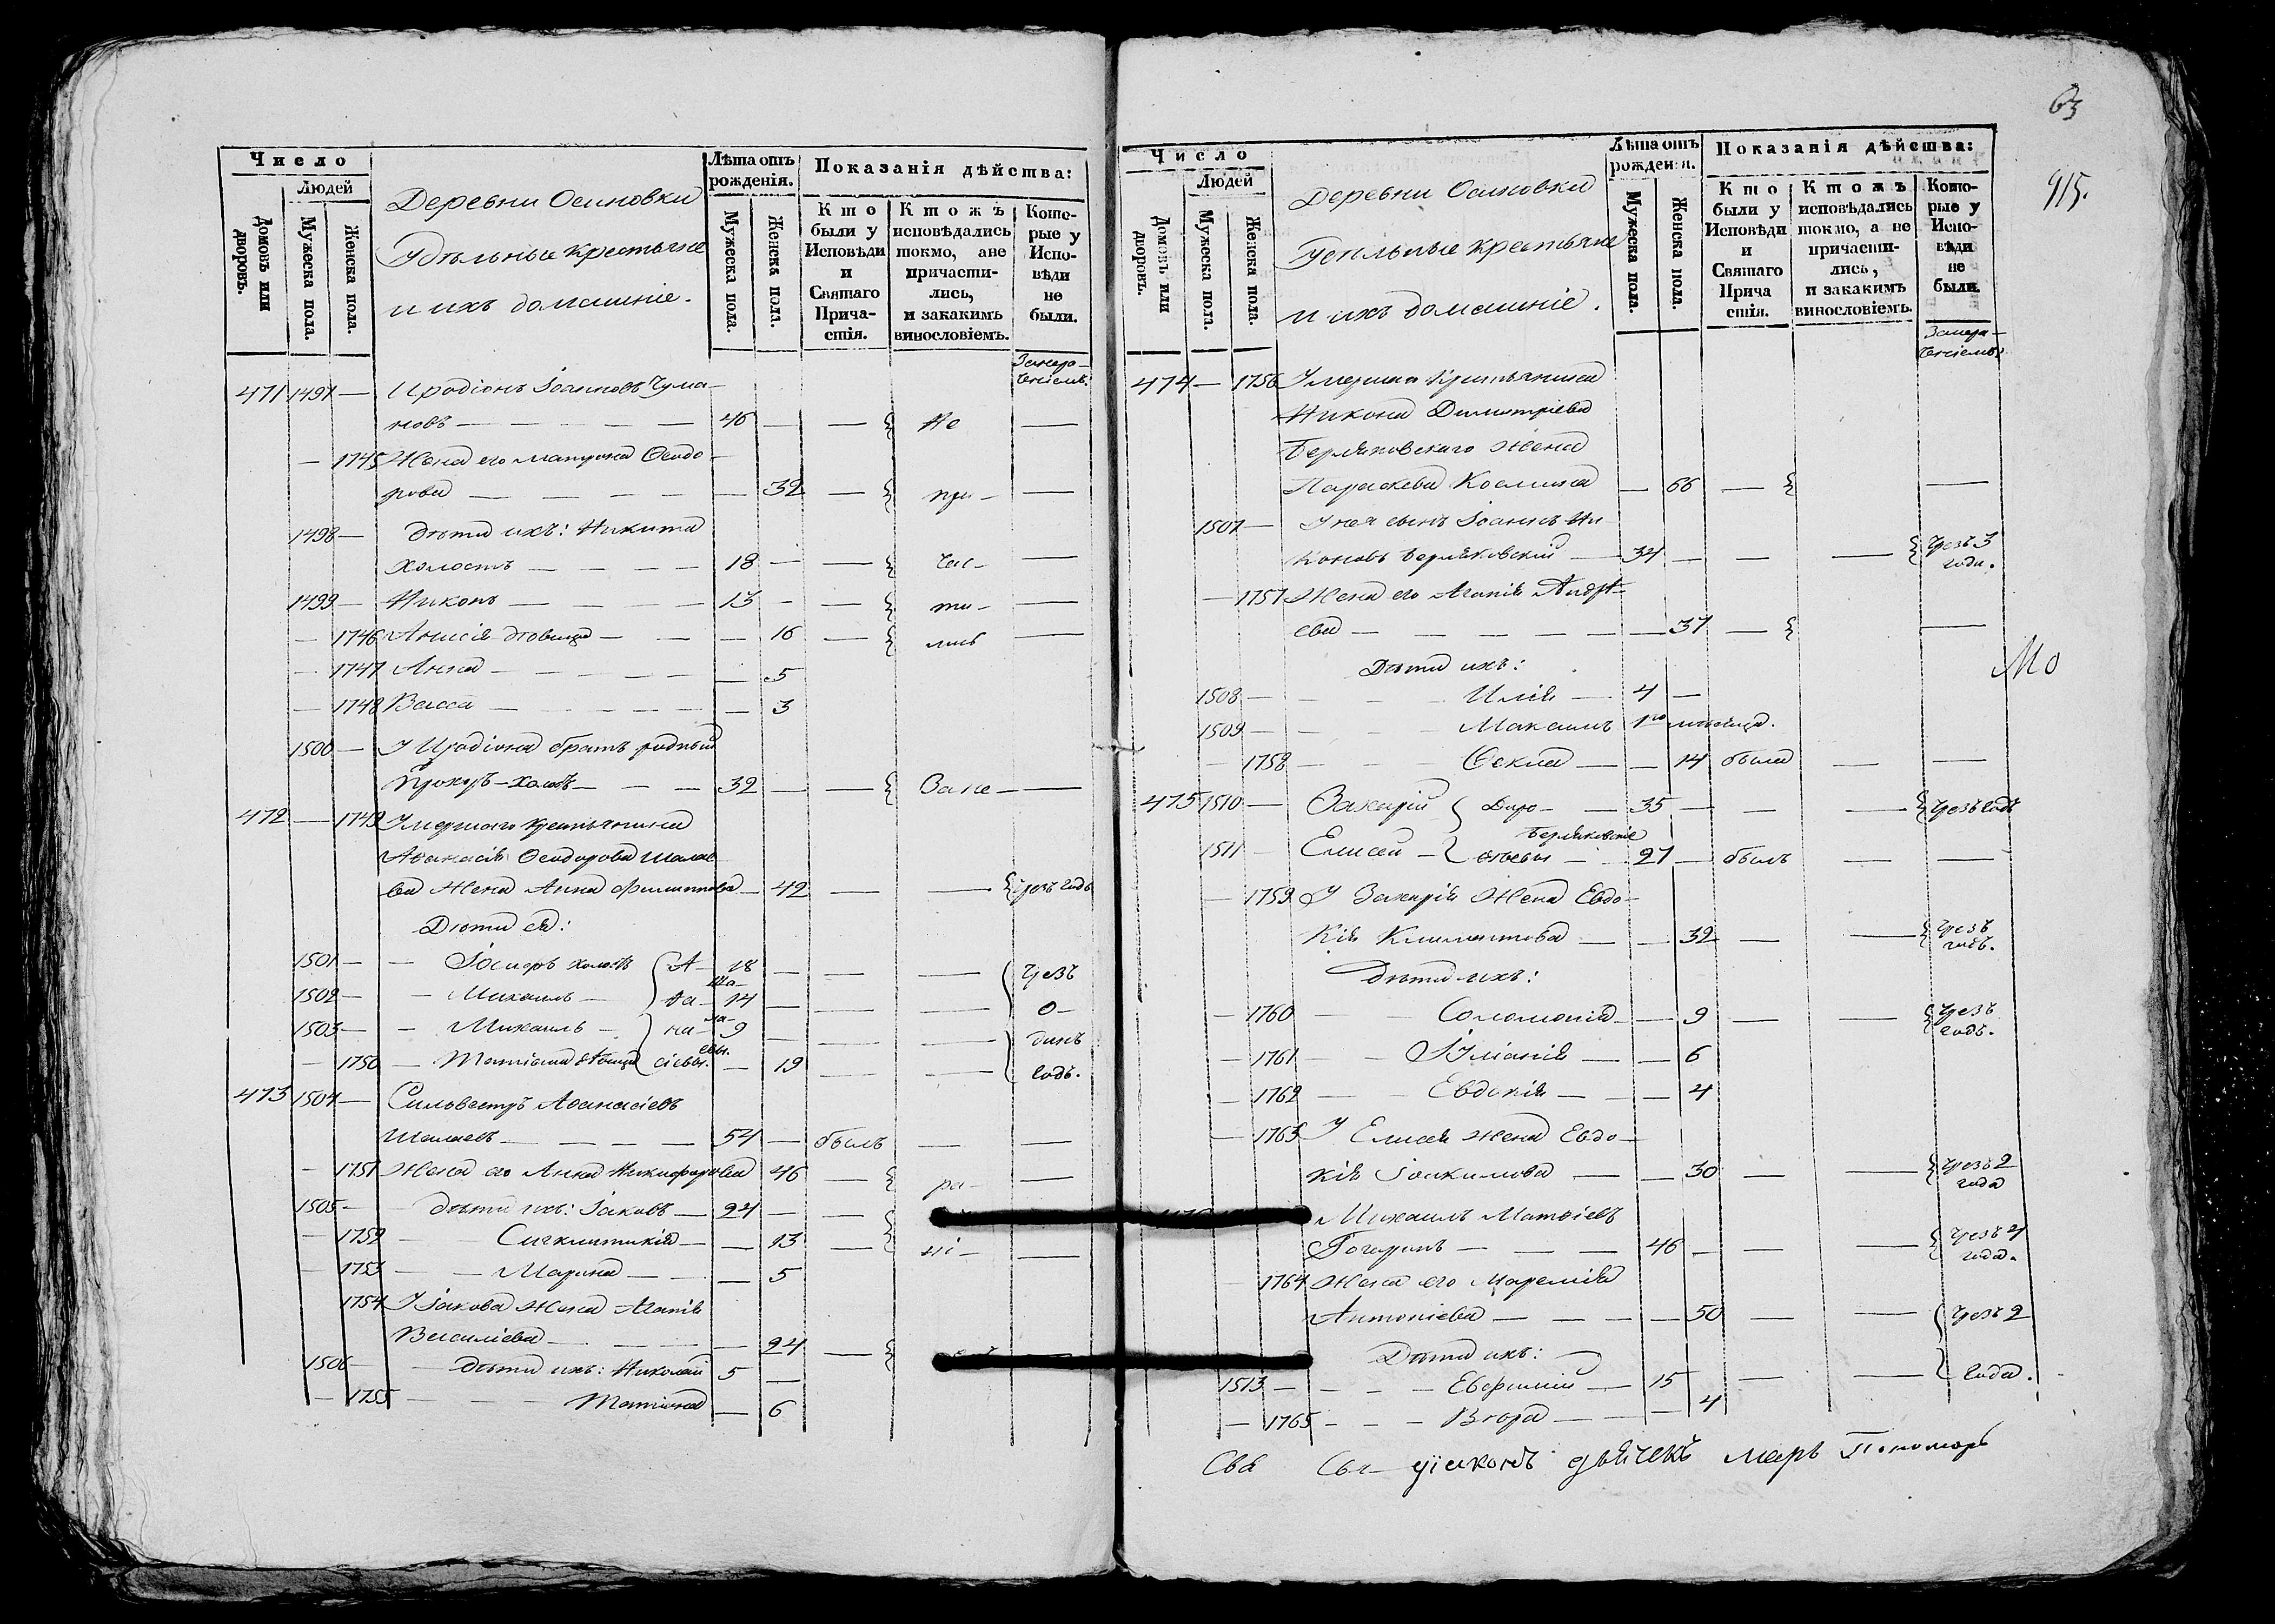 Число
Людей
Домовъ или дворовъ.
Мужеска пола.
Женска пола.
Деревни Осиновки
Удѣльные крестьяне
и ихъ домашніе.
Лѣта отъ рожденія.
Мужеска пола.
Женска пола.
Показанія дѣйства:
Кто были у Исповѣди и Святаго Причастія.
Ктожъ исповѣдались токмо, ане причастились, и закакимъ винословіемъ.
Которые у Исповѣди не были.
471 1497 — Иродіонъ Іоанновъ Чума-
новъ — 46 — — Не —
— 1745 Жена его Матрона Ѳеодо-
рова — — 32 — при- —
1498 — дѣти ихъ: Никита
холостъ — 18 — — час- —
1499 — Никонъ — 13 — — ти- —
— 1746 Анисія дѣвица — — 16 — лись —
— 1747 Анна — — 5
— 1748 Васса — — 3
1500 — У Иродіона братъ родный
— 32 — — За не- —
472 — 1749 Умершаго крестьянина
Аѳанасія Ѳеодорова Шалае-
ва жена Анна Филиппова — 42 — — чрезъ годъ
Дѣти ея:
1501 — — холостъ А- 18 — — — чрезъ
1502 — — Михаилъ — ѳа- Ша- 14 — — — о-
1503 — — Михаилъ — на- ла- 9 — — — динъ
— 1750 — Татіана дѣвица сіевы. евы. — 19 — — годъ.
473 1504 — Сильвестръ Аѳанасіевъ
Шалаевъ — 54 — былъ — —
— 1751 Жена его Анна Никифорова 46 — ра- —
1505 — дѣти ихъ: Іаковъ — 24 — —
— 1752 — Сигклитикія — — 13 — ні- —
— 1753 — Марина — — 5
1754 У Іакова жена Агапія
Василіева — — 24 —
1506 — дѣти ихъ: Николай 5 —
— 1755 — Татіана — 6
63
915.
Число
Людей
Домовъ или дворовъ.
Мужеска пола.
Женска пола.
Деревни Осиновки
Удѣльные крестьяне
и ихъ домашніе.
Лѣта отъ рожденія.
Мужеска пола.
Женска пола.
Показанія дѣйства:
Кто были у Исповѣди и Святаго Причастія.
Ктожъ исповѣдались токмо, а не причастились, и закакимъ винословіемъ.
Которые у Исповѣди не были.
474 — 1756 Умершаго крестьянина
Никона Димитріева
Берляковскаго жена
Параскева Космина — 66 — —
1507 — У нея сынъ Іоаннъ Ни-
коновъ Берляковскій — 34 — — — чрезъ 3 года.
— 1757 Жена его Агапія Андре-
ева — — 37 — —
Дѣти ихъ:
1508 — — Илія — 4 —
1509 — — Максимъ 1го мѣсяца.
— 1758 — Ѳекла — — 14 была — —
Мо
475 1510 — Захарій Доро- — 35 — — — чрезъ годъ
1511 — Елисей — ѳѣевы Берляковскіе — 27 — былъ — —
— 1759 У Захарія жена Евдо-
кія Климентова — — 32 — — чрезъ годъ.
дѣти ихъ:
— 1760 — Соломонія — — 9 — — чрезъ годъ.
— 1761 — Іуліанія — — 6
— 1762 — Евдокія — — 4
— 1763 У Елисея жена Евдо-
кія Іоакимова — — 30 — — чрезъ 2 года
Михаилъ Матѳіевъ
46 — — — чрезъ 4 года.
1764 Жена его
Антоніева — — 50 — — чрезъ 2
Дѣти ихъ:
1513 — — Евфимій — 15 — — года.
— 1765 — — 4
діаконъ дьячекъ Пономарь